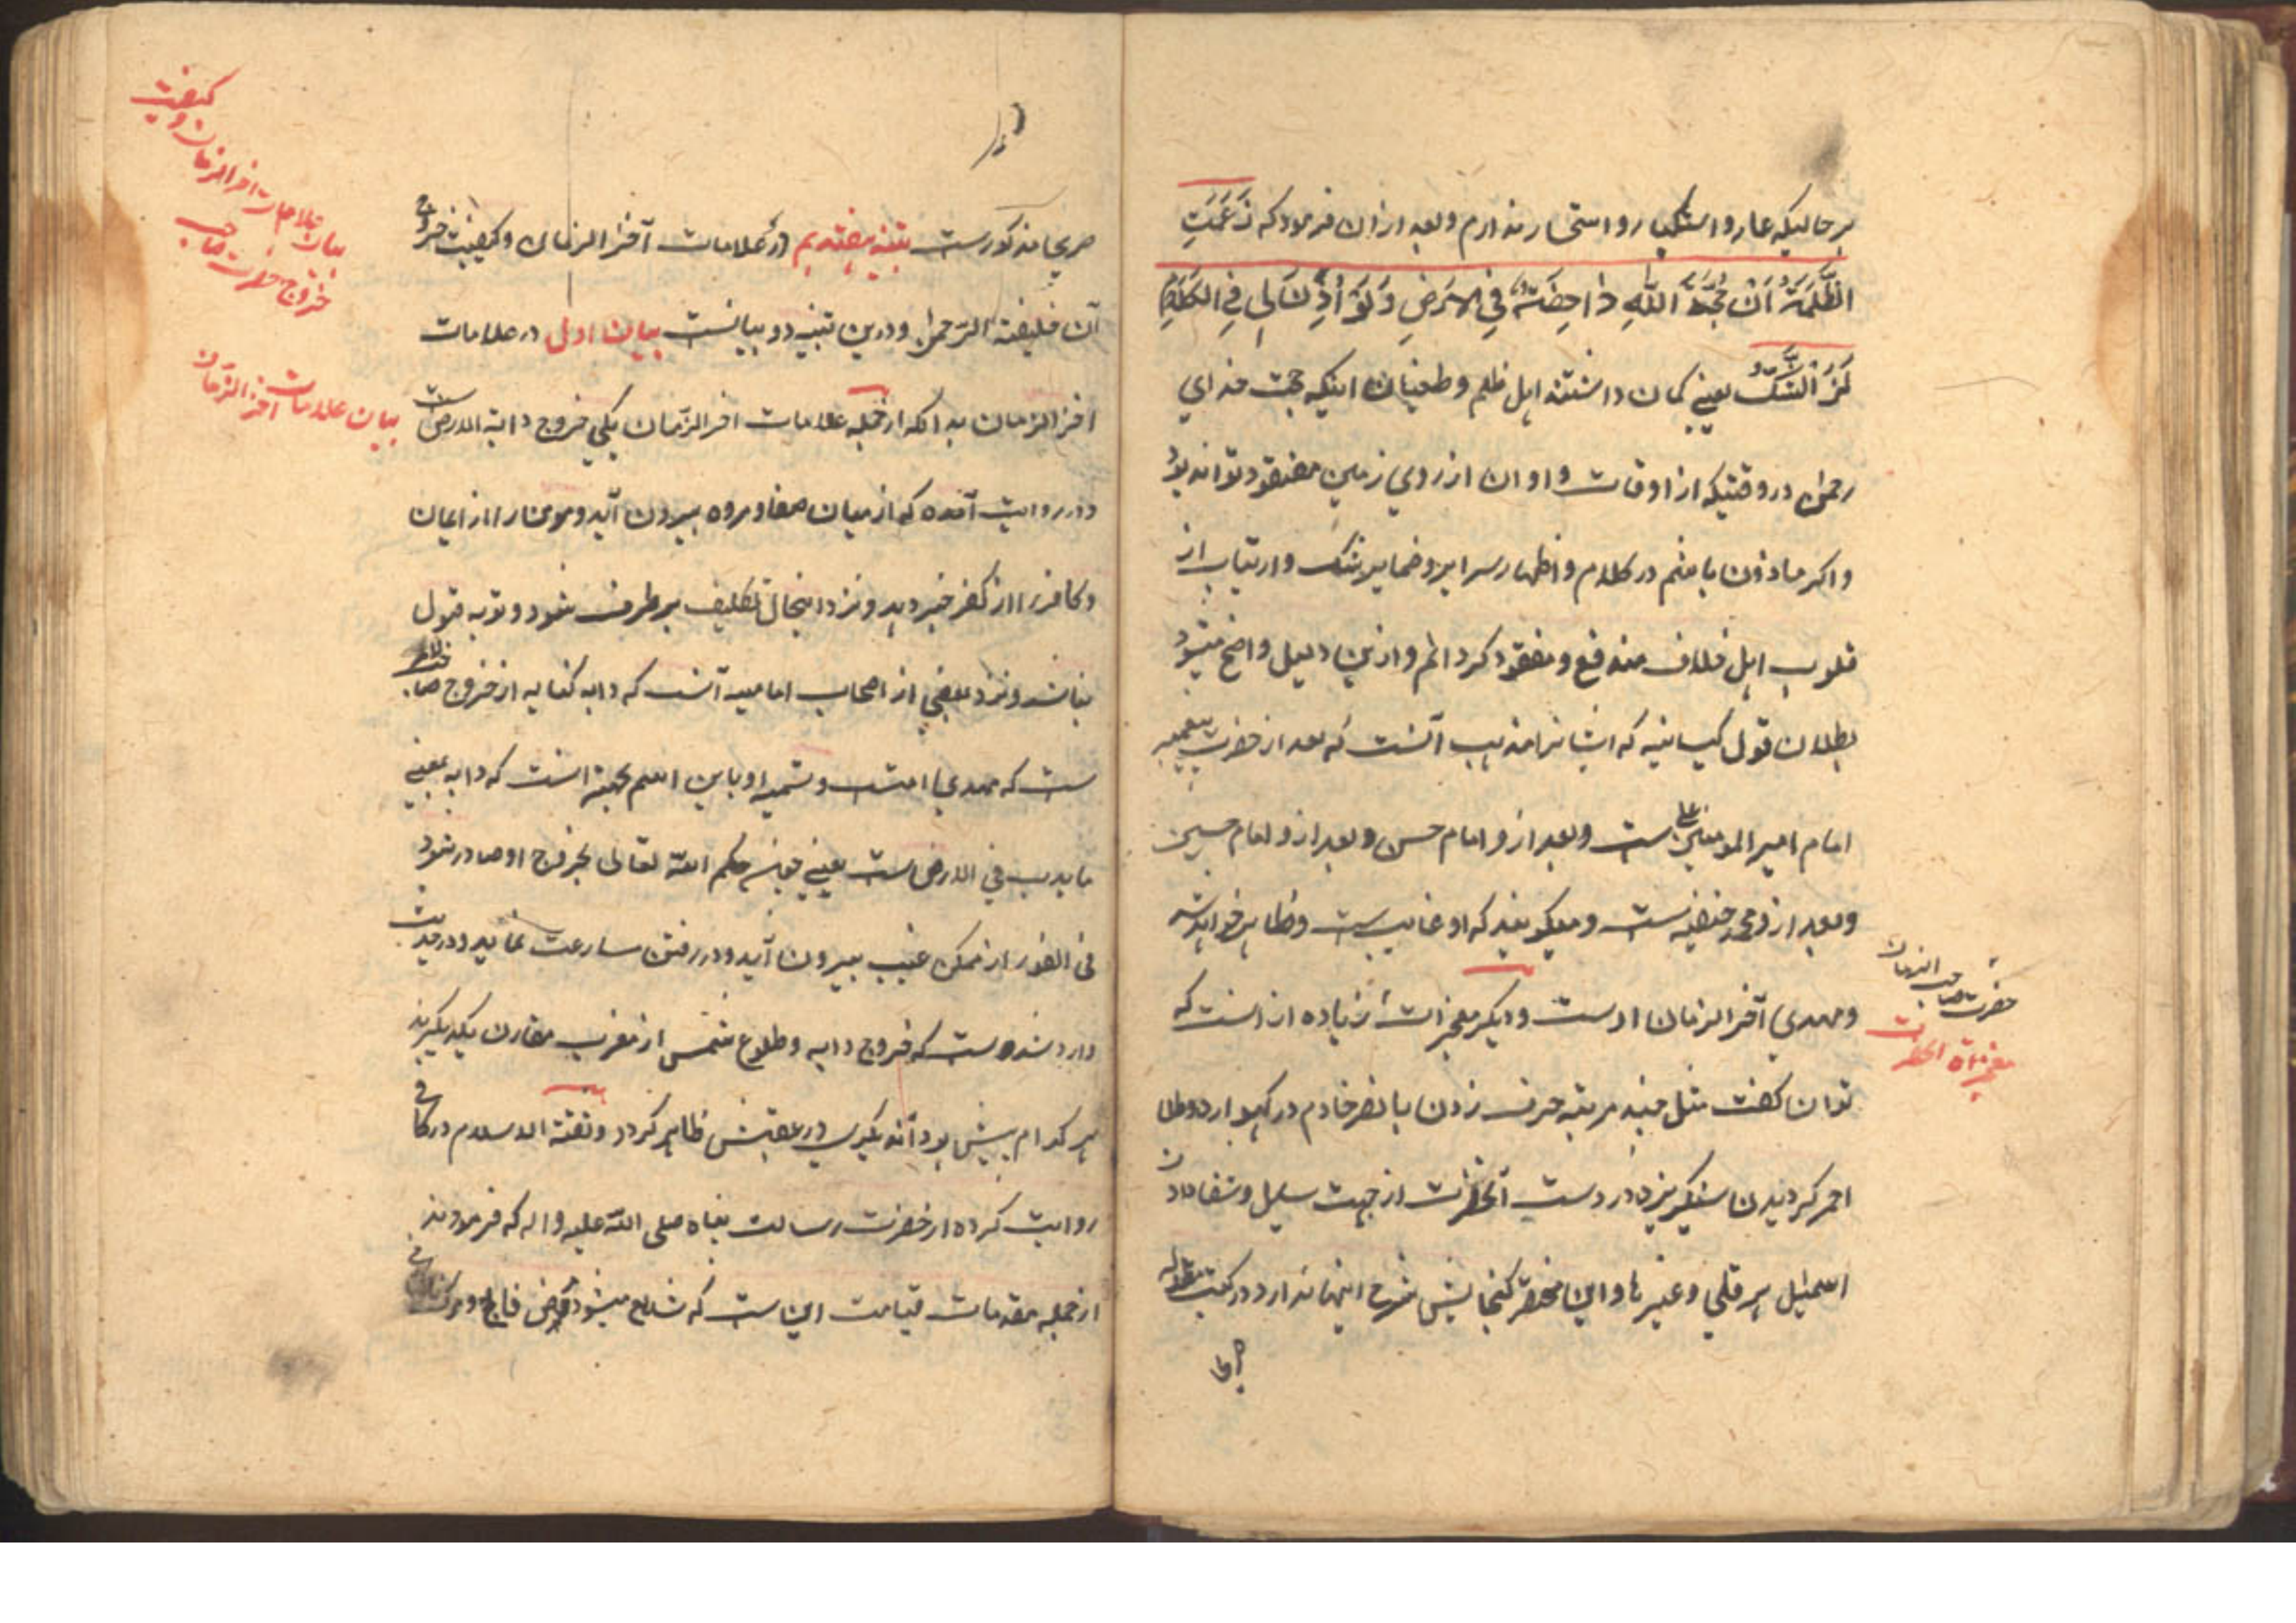 بر حالیکه عار و استکبار و استحسار ندارم و بعد از ان فرمود که زَعَمَتِ
الظَّلَمَةُ اَنَّ حُجَّةَ اللّٰهِ دٰاحِضَةٌ فِی الاَرضِ وَلَو اُذِنَ لَنٰا فِی الکَلامِ
لَزٰالَ الشَّکُّ یعنی کمان داشتند اهل ظلم و طغیان اینکه حجت خدای
رحمن در وقتیکه از اوقات و اوان از روی زمین مفقود تواند بود
و اکر ماذون باشم در کلام و اظهار سرایر و ضمایر شک و ارتیاب از
قلوب اهل خلاف مندفع و مفقود کردانم و ازین دلیل واضح میشود
بطلان قول کیسانیه که ایشانرا مذهب آنست که بعد از حضرت پیغمبر
امام امیر المومنین علی ست و بعد ازو امام حسن و بعد ازو امام حسین
و بعد ازو محمد حنفیه ست و میکویند که او غایب ست و ظاهر خواهد شد
و مهدی آخر الزمان اوست و دیکر معجزات زیاده از انست که
توان کفت مثل چند مرتبه حرف زدن با نصر خادم در کهواره و طلا
احمر کردیدن سنکریزه در دست آنحضرت از جهت سایل و شفا دادن
اسمعیل هرقلی و غیرها و این مختصر کنجایش شرح اینها ندارد در کتب
حضرت صاحب الزمان
معجزات آنحضرت
صریحا مذکورست تنبیه هفتدهم در علامات آخر الزمان و کیفیت خروج
آن خلیفة الرحمن و درین تنبیه دو بیانست بیان اول در علامات
اخر الزمان بدانکه از جمله علامات اخر الزمان یکی خروج دابة الارض ست
و در روایت آمده که از میان صفا و مروه بیرون آید و مومن را از ایمان
و کافر را از کفر خبر دهد و نزد اینحال تکلیف برطرف شود و توبه قبول
نباشد و نزد بعضی از اصحاب امامیه آنست که دابه کنایه از خروج صاحب
ست که مهدی امتست و تسمیه او باین اسم بجهة انست که دابه بمعنی
ما یدب فی الارض ست یعنی چون حکم الله تعالی بخروج او صادر شود
فی الفور از ممکن غیب بیرون آید و در رفتن مسارعت نماید و در حدیث
وارد شده ست که خروج دابه و طلوع شمس از مغرب مقارن یکدیکرند
هر کدام پیش بود آن دیکری در عقبش ظاهر کردد و ثقة الاسلام در کافی
روایت کرده از حضرت رسالت پناه صلی الله علیه و اله که فرمودند
از جمله مقدمات قیامت این است که شایع میشود مرض فالج و مرک
بیان علامات اخر الزمان و کیفیت
خروج حضرت صاحب
بیان علامات اخر الزمان